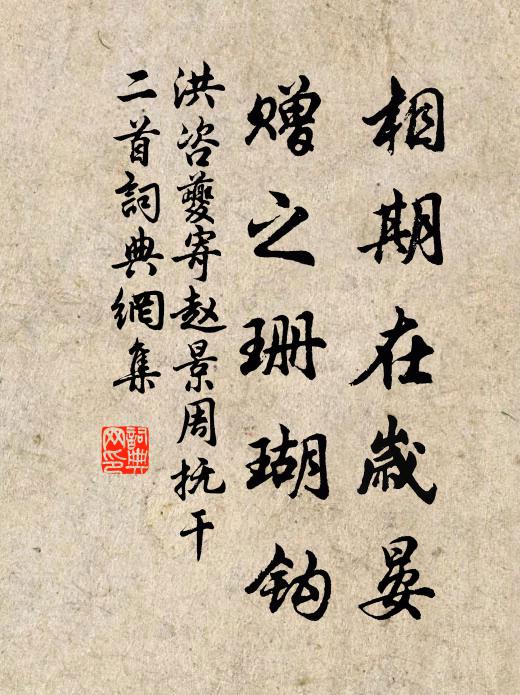 相期在歲晏
赠之珊瑚钩
洪咨夔寄赵景周抚干
二首詞典網集
詞典
网印